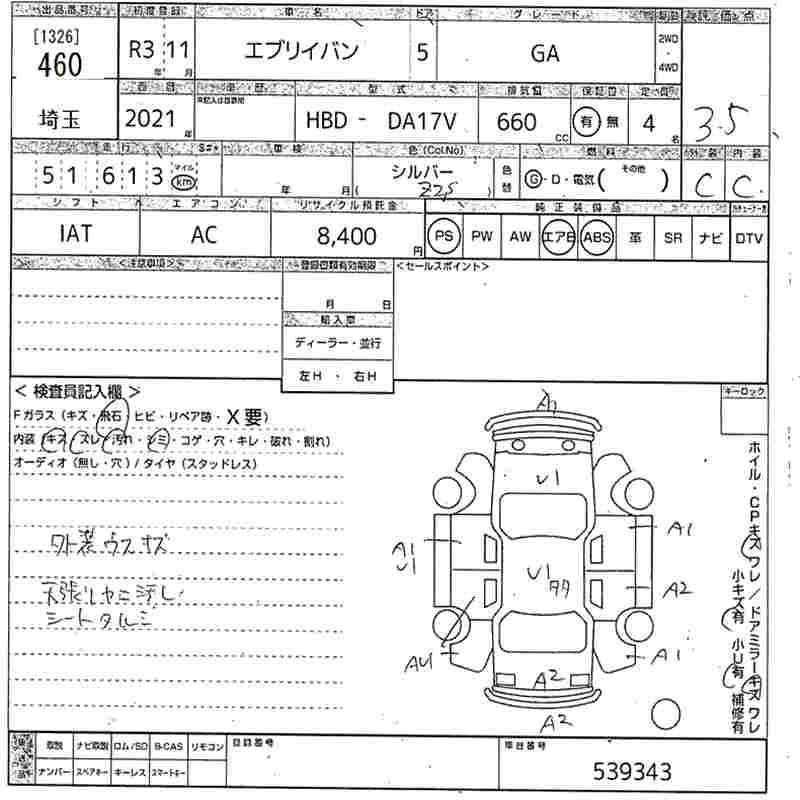 出品番号 初度登録 車名 ドア グレード 駆動 評価点
[1326] 460 R3 年 11 月 エブリイバン 5 GA 2WD ・ 4WD
西暦 車歴 型式 排気量 保証書 定員
埼玉 2021 年 未記入は自家用 HBD - DA17V 660 CC 有 無 4 名 3.5
走行 S#* 車検 色(Col.No) 燃料 外装 内装
51613 マイル km 年 月 シルバー ( Z2S ) 色替 G・D・電気( その他 ) C C
シフト エアコン リサイクル預託金 純正装備品
IAT AC 8,400 円 PS PW AW エアB ABS 革 SR ナビ DTV
<注意事項> 登録書類有効期限 <セールスポイント>
月 日
輸入車
ディーラー・並行
左H ・ 右H
< 検査員記入欄 > キーロック
Fガラス (キズ・飛石 ヒビ・リペア跡・X要)
内装 (キズ スレ 汚れ・シミ・コゲ・穴・キレ・破れ・割れ)
オーディオ (無し・穴) / タイヤ (スタッドレス)
外装ウスキズ
天張リヤニ汚レ
シートタルミ
A1
U1
A1
A1
U1
U1
タタ
A2
AU
A1
A2
A2
ホイル・CPキズ ワレ / ドアミラーキズ ワレ
小キズ有 小U有 補修有
取説 ナビ取説 ロム/SD B-CAS リモコン 登録番号 車台番号
ナンバー スペアキー キーレス スマートキー 539343